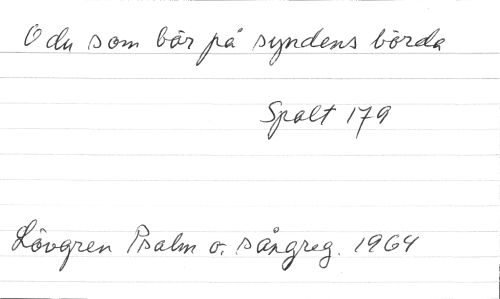 O du som bär på syndens börda
Spalt 179
Lövgren Psalm o. sångreg. 1964